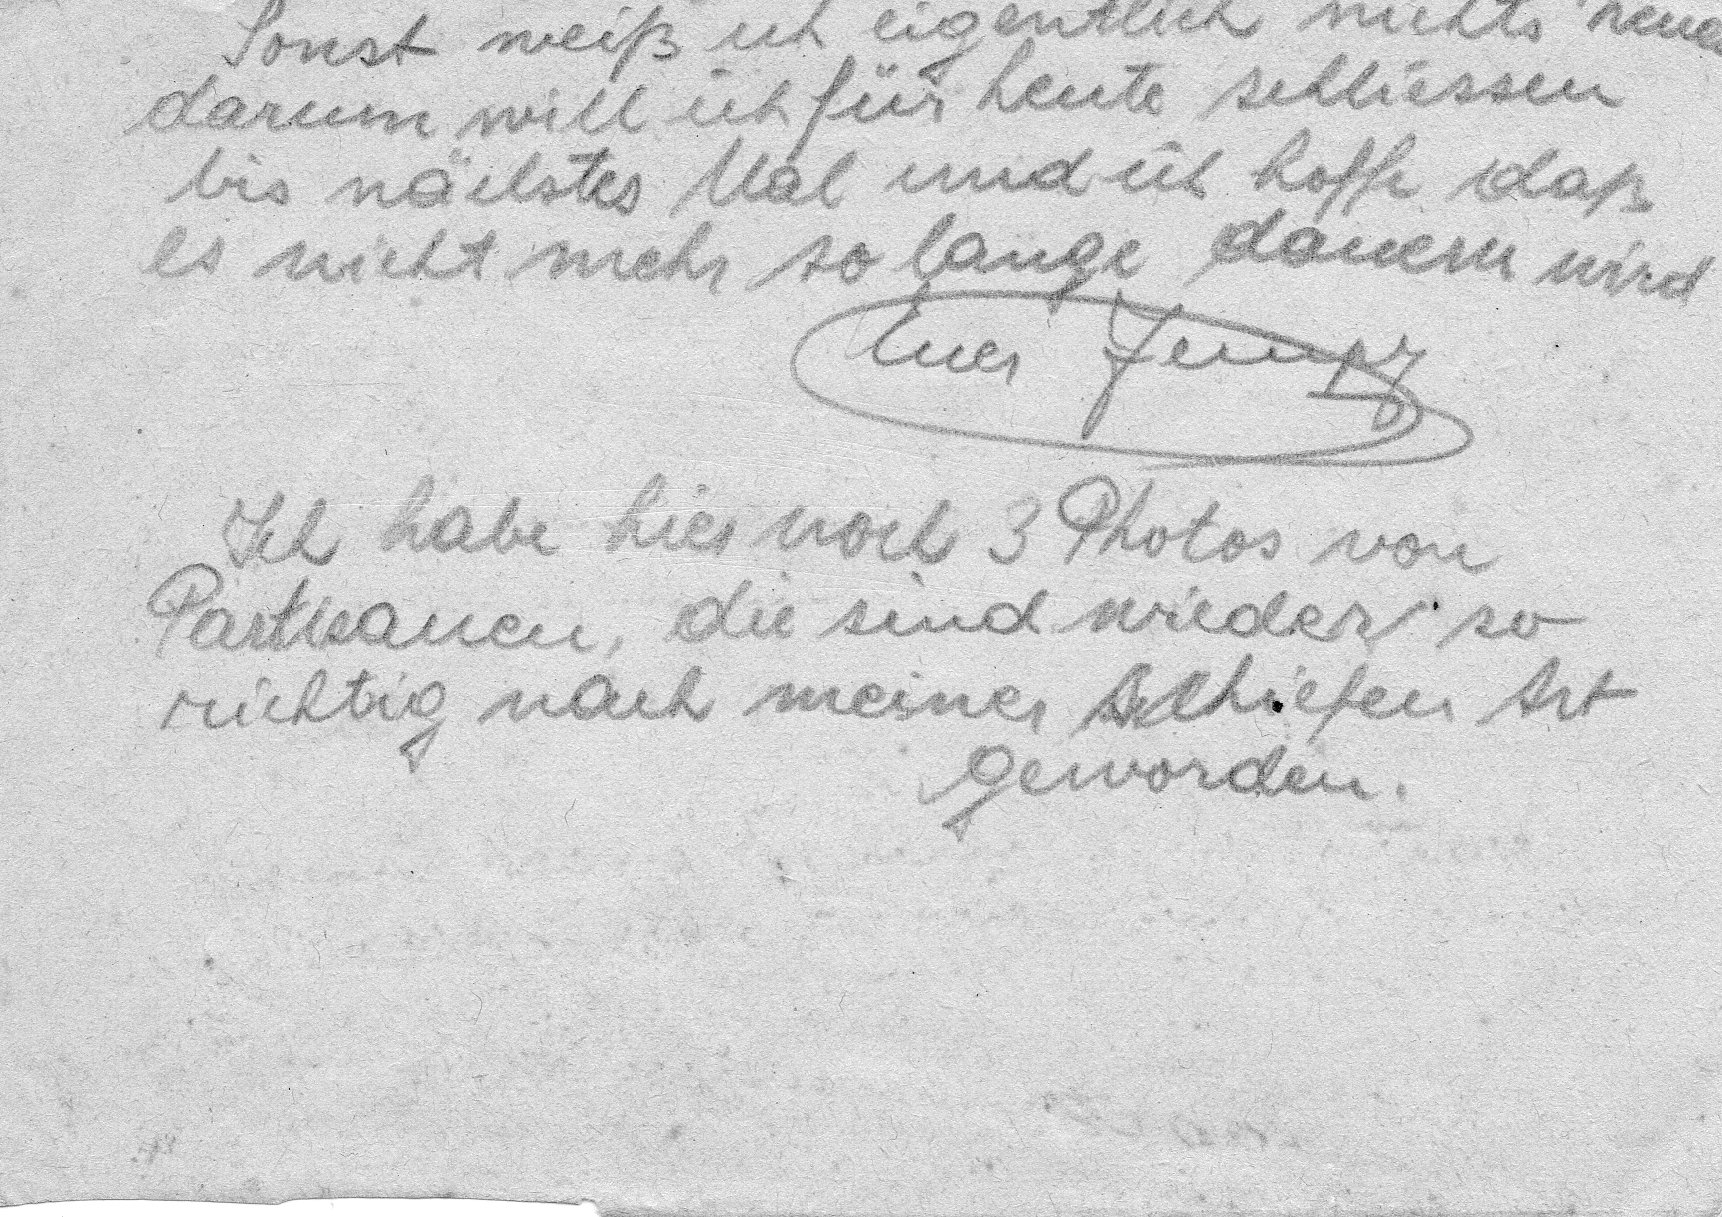 Sonst weiß ich eigentlich nichts neues
darum will ich für heute schliessen
bis nächstes Mal und ich hoffe daß
es nicht mehr so lange dauern wird
Euer
Ich habe hier noch 3 Photos von
Partisanen, die sind wieder so
richtig nach meiner schiefen Art
geworden.